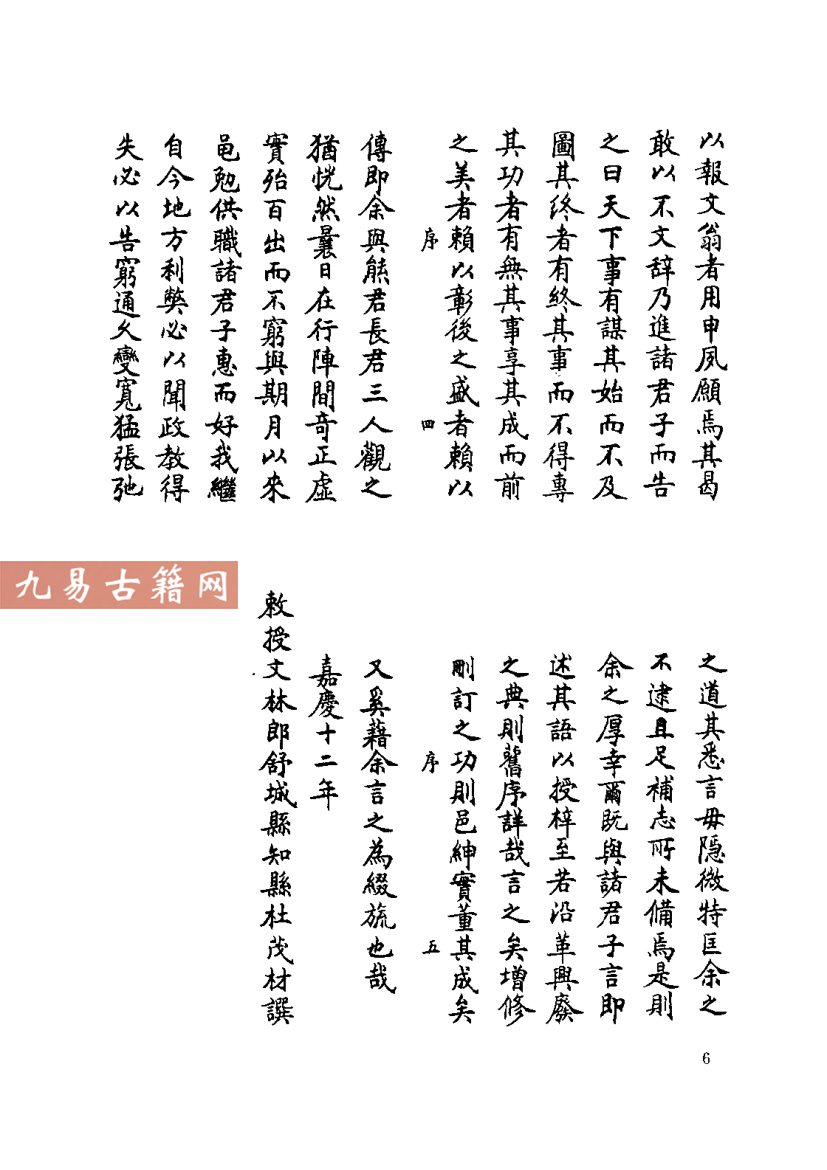 以報文翁者用申夙願焉其曷
敢以不文辭乃進諸君子而告
之曰天下事有謀其始而不及
圖其終者有終其事而不得專
其功者有無其事享其成而前
之美者賴以彰後之盛者賴以
序 四
傳即余與熊君長君三人觀之
猶恍然曩日在行陣間奇正虛
實殆百出而不窮與期月以來
邑勉供職諸君子惠而好我繼
自今地方利獘必以聞政教得
失必以告窮通久變寬猛張弛
之道其悉言毋隱微特匡余之
不逮且足補志所未備焉是則
余之厚幸爾既與諸君子言即
述其語以授梓至若沿革興廢
之典則舊序詳哉言之矣增修
刪訂之功則邑紳實董其成矣
序 五
又奚藉余言之為綴旒也哉
嘉慶十二年
敕授文林郎舒城縣知縣杜茂材譔
九易古籍网
6